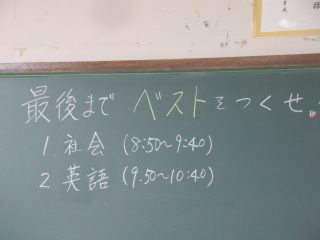 最後まで ベストをつくせ。
1. 社会 (8:50~9:40)
2 英語 (9:50~10:40)